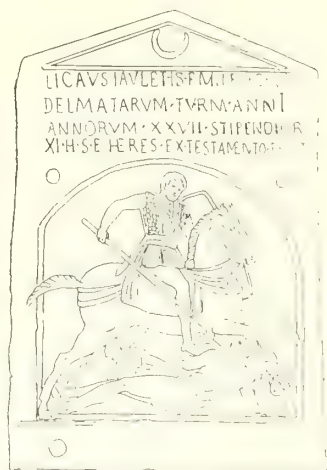 LICAVS·IAVLETIS·F·MIL
DELMATARVM·TVRM·ANNI
ANNORVM·XXVII·STIPENDIOR
XI·H·S·E HERES·EX·TESTAMENTO